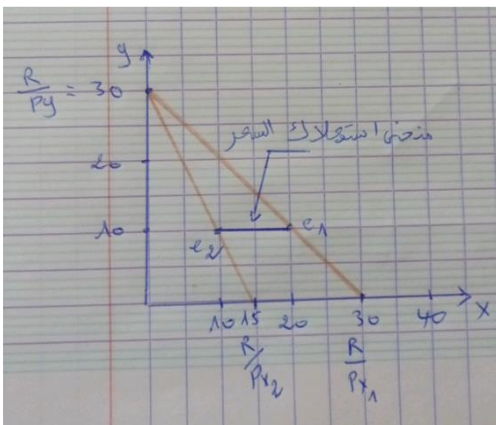 y
R/Py = 30
منحنى استهلاك السعر
20
10
e2
e1
10 15 20 30 40 x
R/Px2
R/Px1